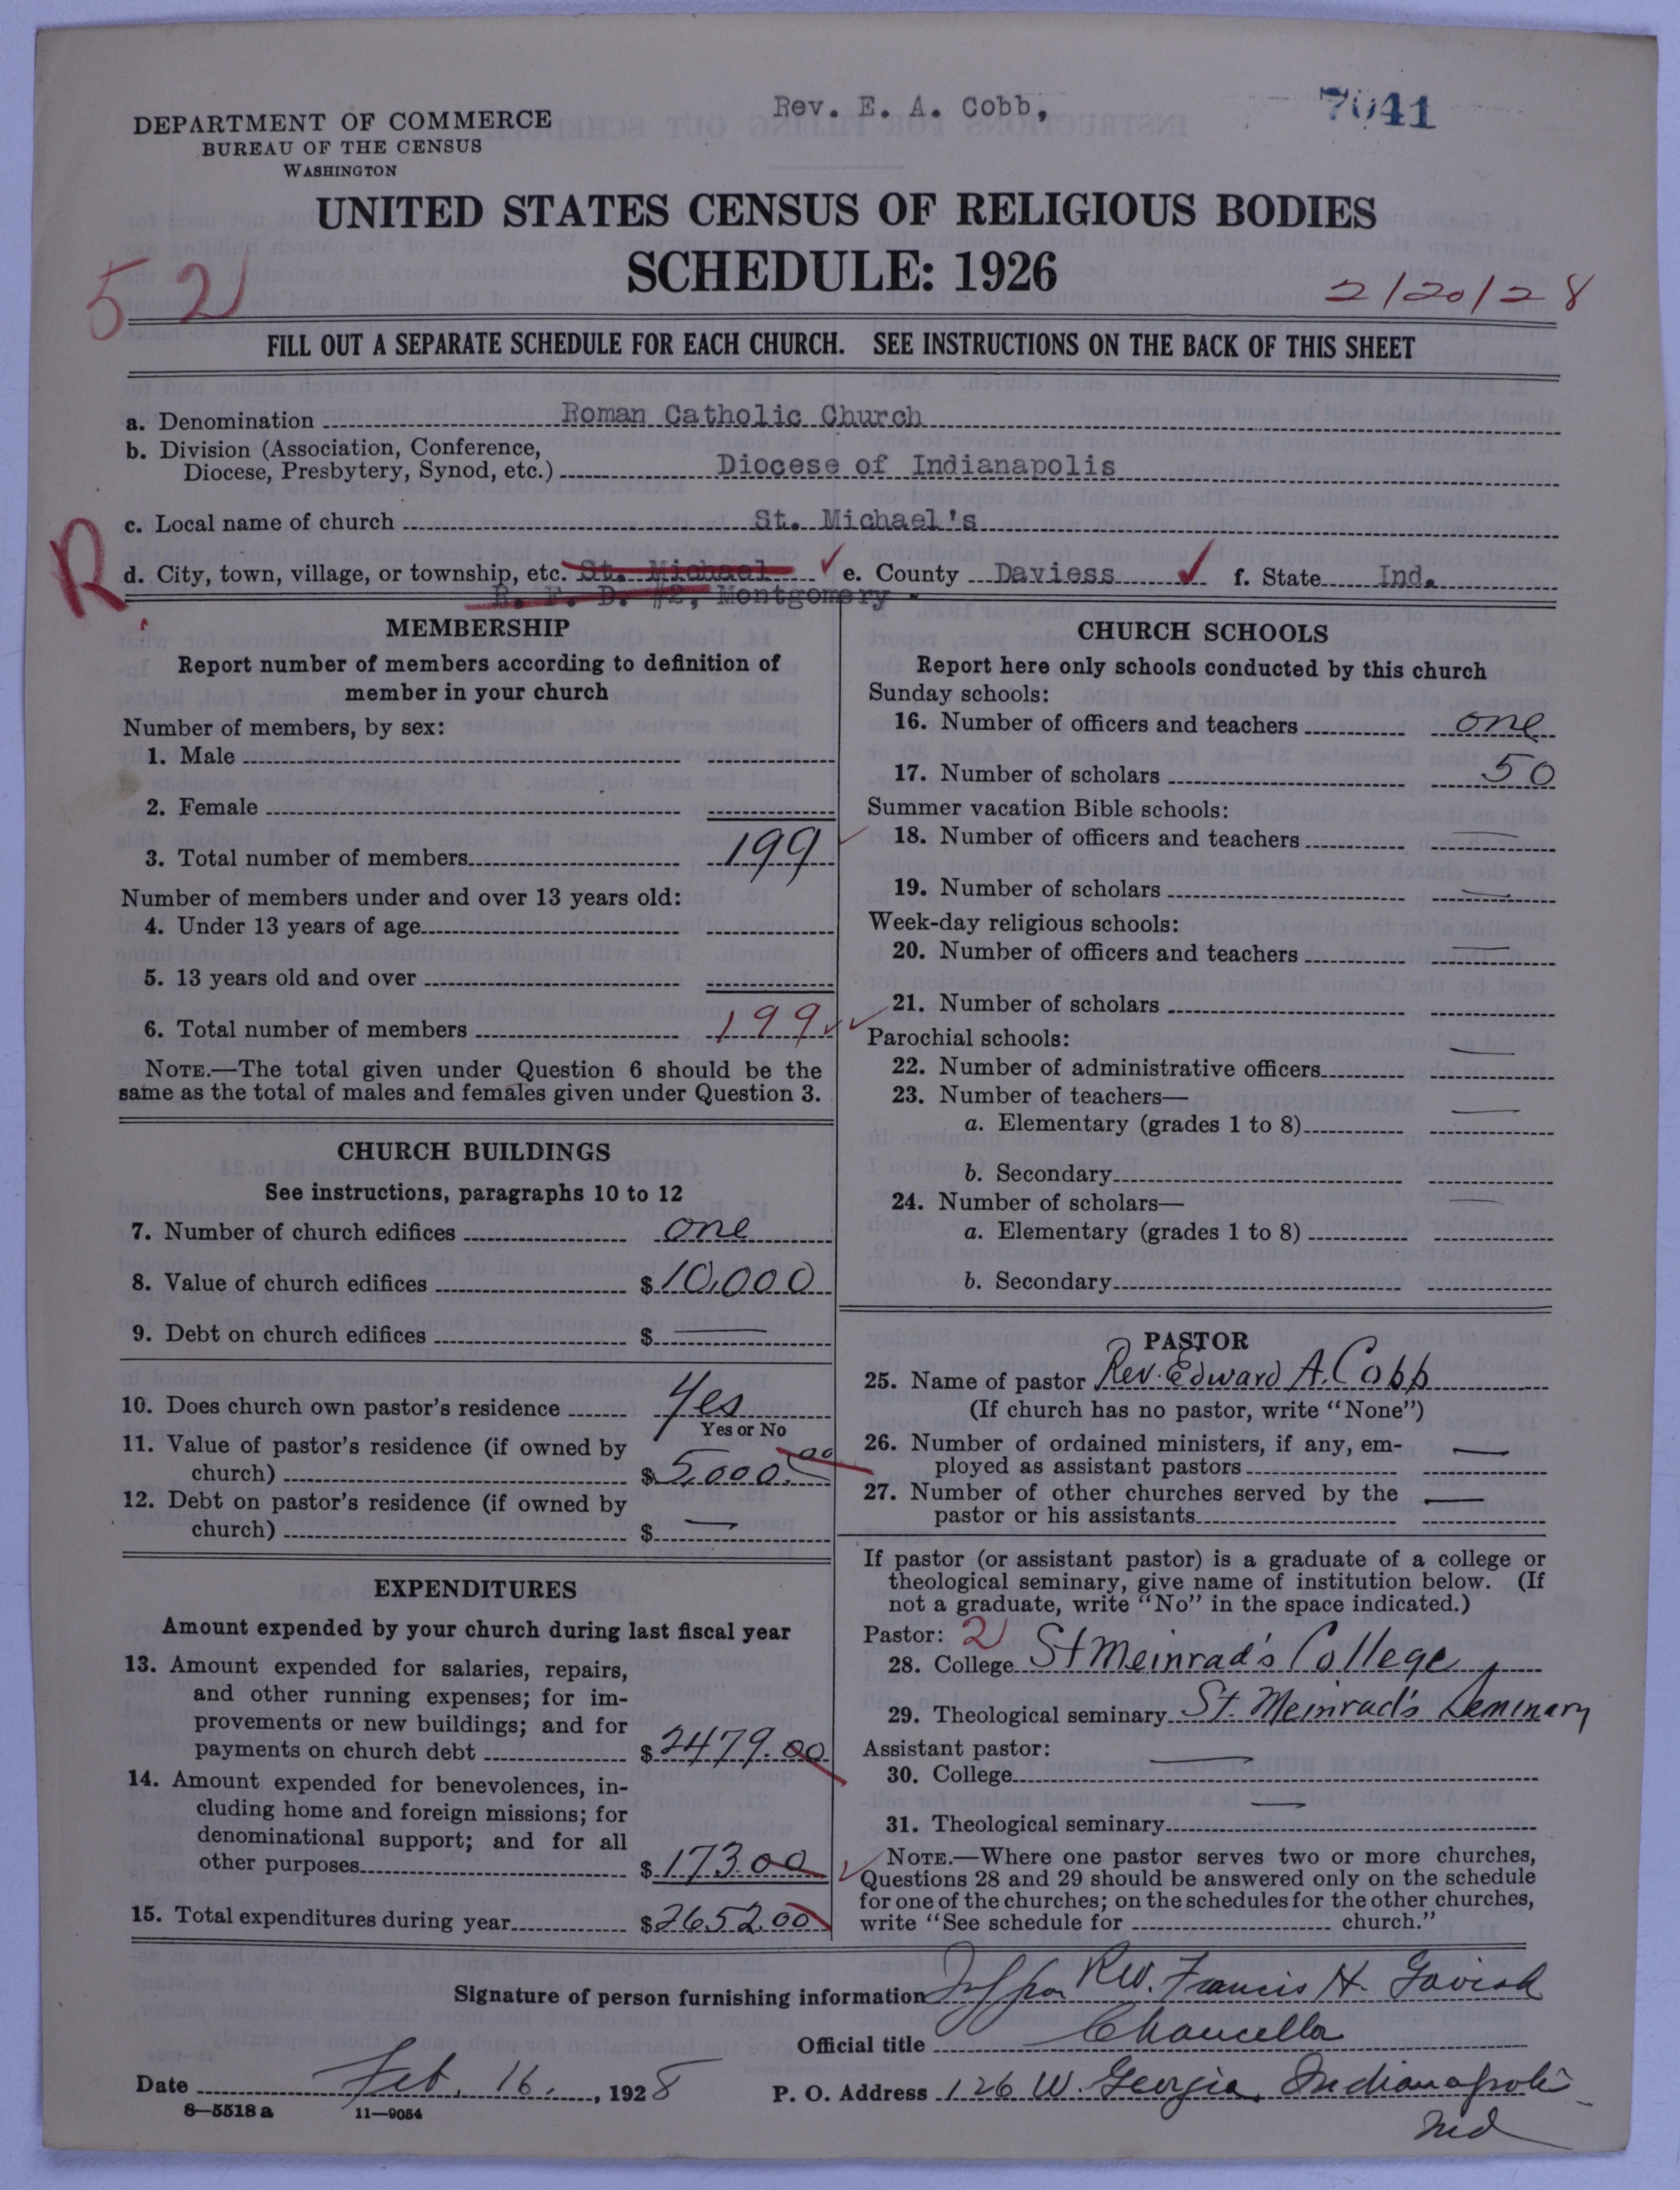 Rev. E. A. Cobb,
7041
DEPARTMENT OF COMMERCE
BUREAU OF THE CENSUS
WASHINGTON
UNITED STATES CENSUS OF RELIGIOUS BODIES
SCHEDULE: 1926
52
2/20/28
FILL OUT A SEPARATE SCHEDULE FOR EACH CHURCH. SEE INSTRUCTIONS ON THE BACK OF THIS SHEET
a. Denomination Roman Catholic Church
b. Division (Association, Conference,
Diocese, Presbytery, Synod, etc.) Diocese of Indianapolis
c. Local name of church St. Michael's
R
d. City, town, village, or township, etc. St. Michael ✓ e. County Daviess ✓ f. State Ind.
R. F. D. #2, Montgomery
MEMBERSHIP
Report number of members according to definition of
member in your church
Number of members, by sex:
1. Male
2. Female
3. Total number of members 199
Number of members under and over 13 years old:
4. Under 13 years of age
5. 13 years old and over
6. Total number of members 199
NOTE.—The total given under Question 6 should be the
same as the total of males and females given under Question 3.
CHURCH BUILDINGS
See instructions, paragraphs 10 to 12
7. Number of church edifices one
8. Value of church edifices $10,000
9. Debt on church edifices $ —
10. Does church own pastor's residence Yes
Yes or No
11. Value of pastor's residence (if owned by
church) $5,000.00
12. Debt on pastor's residence (if owned by
church) $ —
EXPENDITURES
Amount expended by your church during last fiscal year
13. Amount expended for salaries, repairs,
and other running expenses; for im-
provements or new buildings; and for
payments on church debt $2479.00
14. Amount expended for benevolences, in-
cluding home and foreign missions; for
denominational support; and for all
other purposes $173.00
15. Total expenditures during year $2652.00
CHURCH SCHOOLS
Report here only schools conducted by this church
Sunday schools:
16. Number of officers and teachers one
17. Number of scholars 50
Summer vacation Bible schools:
18. Number of officers and teachers —
19. Number of scholars —
Week-day religious schools:
20. Number of officers and teachers —
21. Number of scholars
Parochial schools:
22. Number of administrative officers —
23. Number of teachers—
a. Elementary (grades 1 to 8) —
b. Secondary
24. Number of scholars—
a. Elementary (grades 1 to 8) —
b. Secondary
PASTOR
25. Name of pastor Rev. Edward A. Cobb
(If church has no pastor, write "None")
26. Number of ordained ministers, if any, em-
ployed as assistant pastors —
27. Number of other churches served by the
pastor or his assistants —
If pastor (or assistant pastor) is a graduate of a college or
theological seminary, give name of institution below. (If
not a graduate, write "No" in the space indicated.)
Pastor: 2
28. College St Meinrad's College
29. Theological seminary St. Meinrad's Seminary
Assistant pastor:
30. College —
31. Theological seminary —
NOTE.—Where one pastor serves two or more churches,
Questions 28 and 29 should be answered only on the schedule
for one of the churches; on the schedules for the other churches,
write "See schedule for church."
Signature of person furnishing information Rev. Francis H. Gavisk
Official title Chancellor
Date Feb. 16, 1928 P. O. Address 126 W. Georgia, Indianapolis
Ind
8—5518a 11—9054